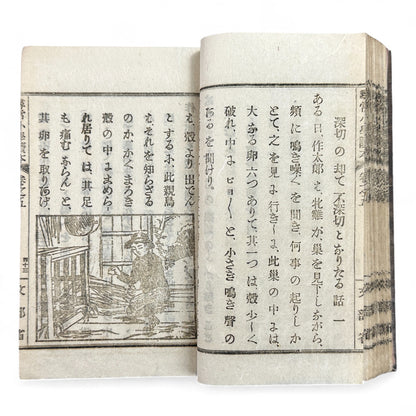 深切の却て不深切となりたる話 一
ある日、作太郎は、牝雞が巢を見下しながら、
頻に鳴き噪ぐを聞き、何事の起りしか
とて、之を見に行きしに、此巢の中には、
大なる卵六つありて、其一つは、殼少しく
破れ、中にヒヨ〱と、小さき鳴き聲の
あるを聞けり。
殼より出でん
とするに、此親鳥
は、それを知らざる
のか、かくまろき
殼の中に、せめら
れ居りては、其足
も痛むならんと、
其卵を取りあげ、
尋常小學讀本 卷之五 四十三 文部省